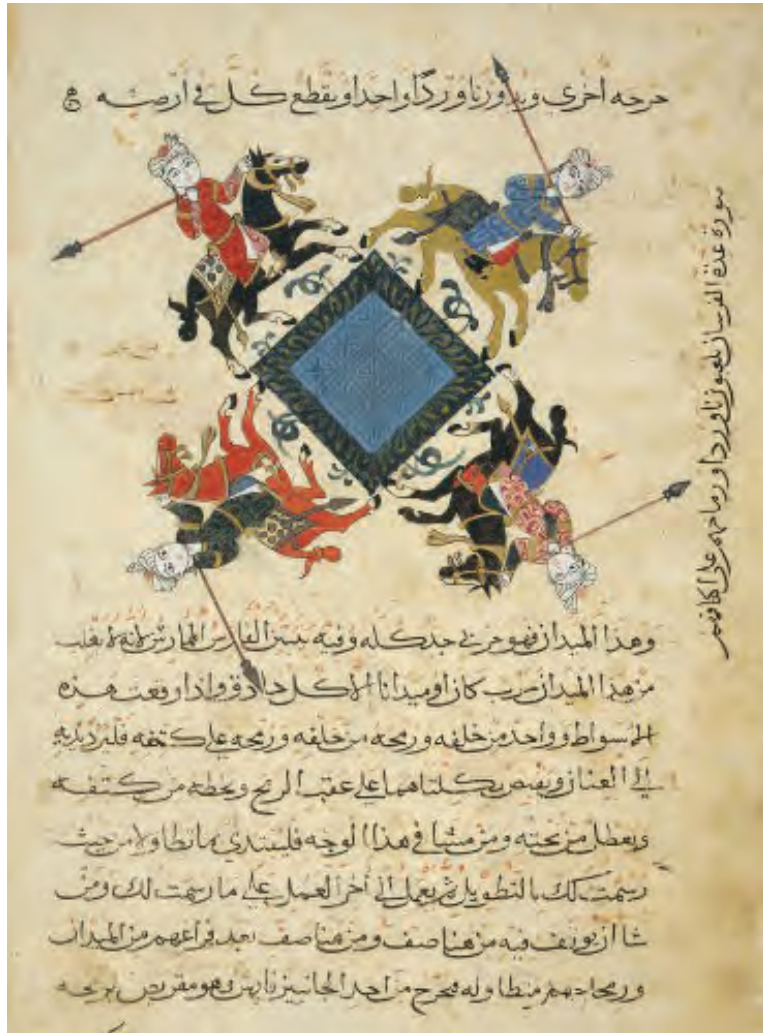 خرجه اخرى ويدورنا وردا واحدا ويقطع كل في ارضه
صورة عدة الفرسان يلعبون ناوردا ورماحهم على اكتافهم
وهذا الميدان فهو حربي جد كله وفيه يبين الفارس الممارس لانه لا يغلب
من هذا الميدان حرب كان او ميدانا الا كل حاذق واذا وقعت هذه
الاسواط وواحد من خلفه ورمحه من خلفه ورمحه على كتفه فليرد يديه
الى العنان ويقبض بكلتاهما على عقب الرمح ويحطه من كتفه
ويعطل من تحته ومن مشا في هذا الوجه فليبتدي بها نطاولا من حيث
رسمت لك بالتطويل ثم يعمل الى اخر العمل على ما رسمت لك ومن
شا ان يوقف فيه من هنا صف ومن هنا صف بعد فراغهم من الميدان
ورماحهم متطاوله فيخرج من احد الجانبين فارس وهو مقربص برمحه